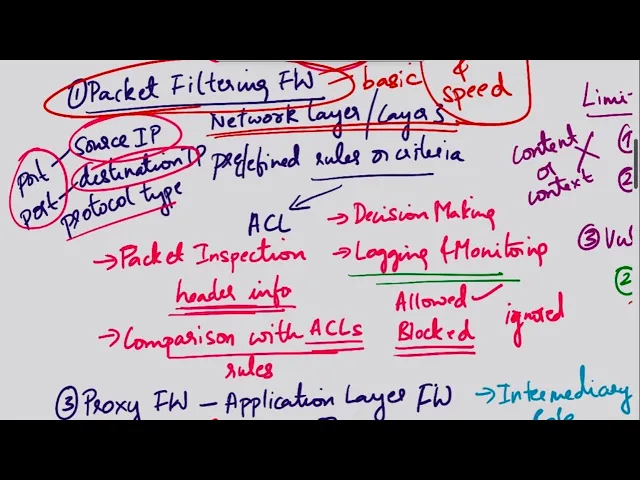 ① Packet Filtering FW → basic
& speed
Network Layer / Layer 3
port - Source IP
port - destination IP
protocol type
predefined rules or criteria
ACL
→ Packet Inspection
header info
→ Comparison with ACLs
rules
→ Decision Making
→ Logging & Monitoring
Allowed ✓
Blocked
ignored
content
or
context
Limi-
①
②
③ Vul
②
③ Proxy FW – Application Layer FW
→ Intermediary